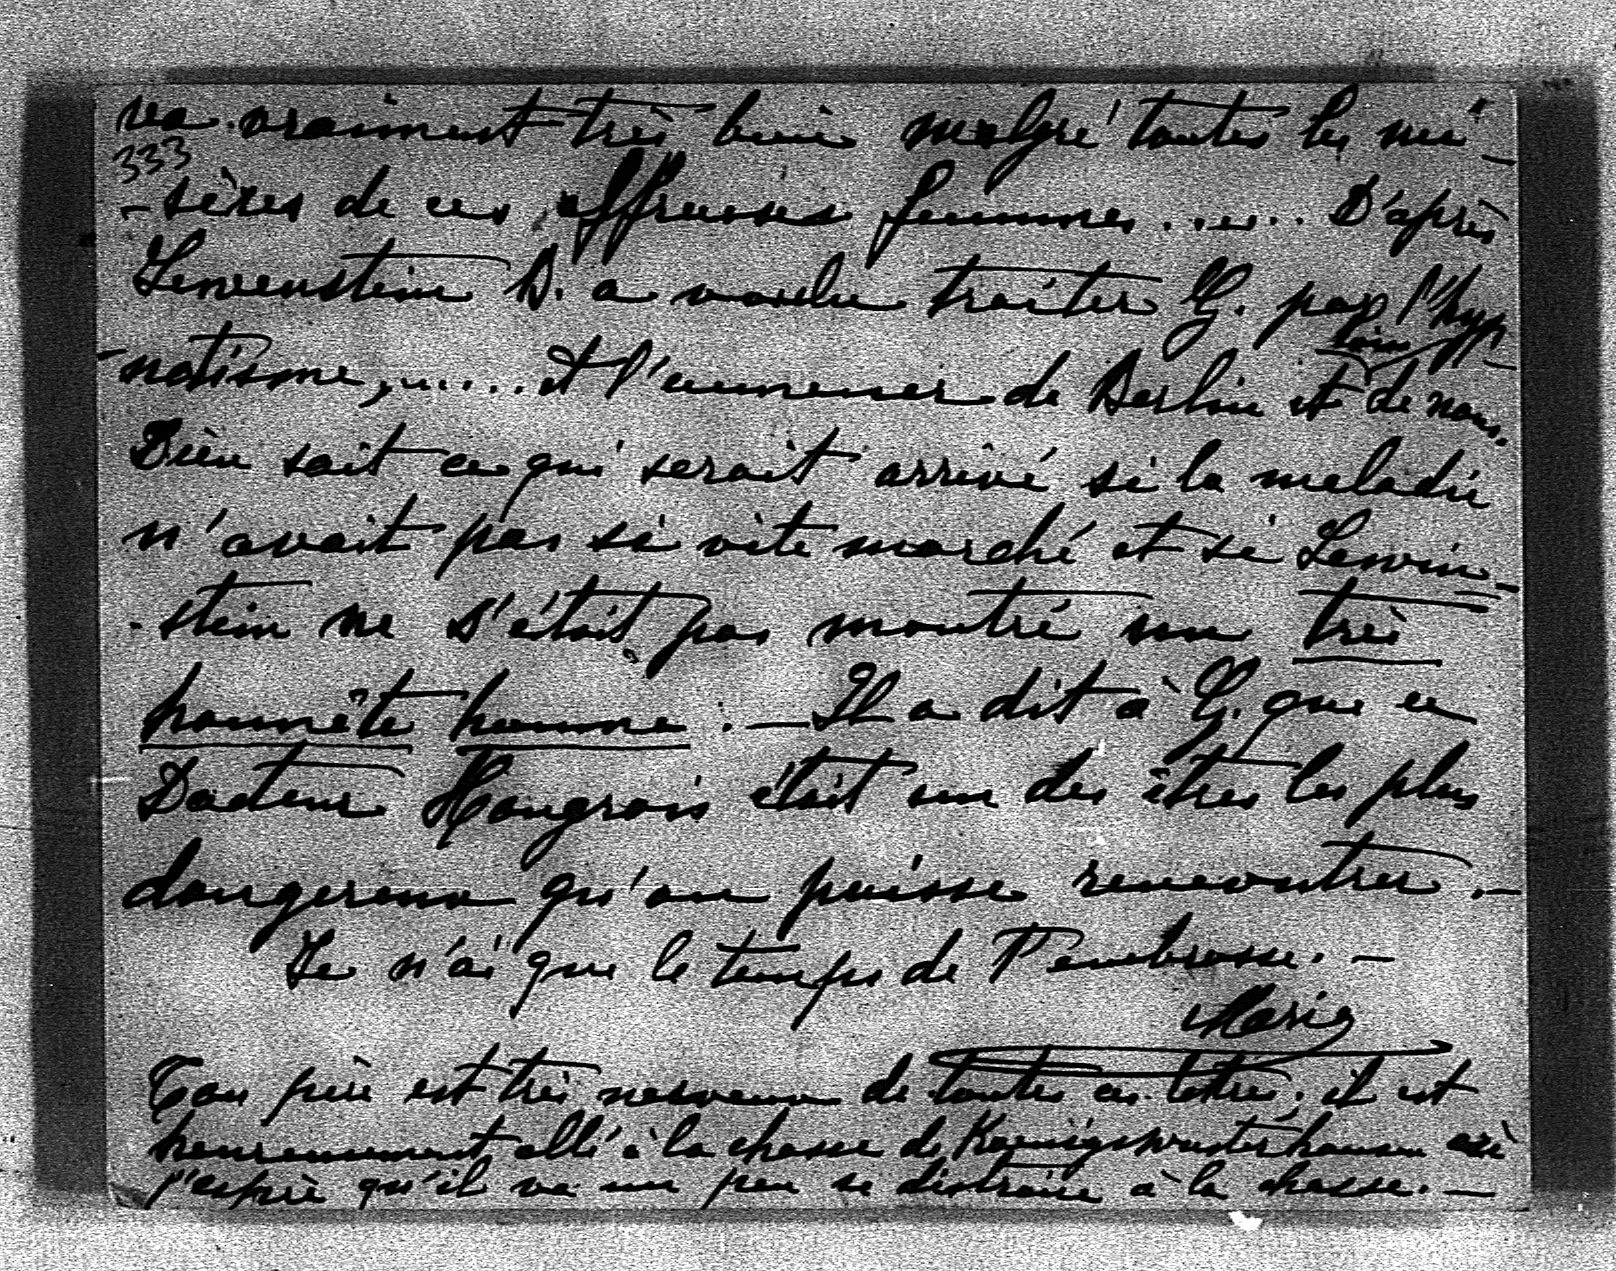 va vraiment très bien malgré toutes les mi-
333
-sères de ces affreuses femmes ..... D'après
Lewenstein D. a voulu traiter G. par l'hyp-
-notisme, ..... et l'emmener de Berlin et loin de nous.
Dieu sait ce qui serait arrivé si la maladie
n'avait pas si vite marché et si Lewin-
-stein ne s'était pas montré un très
honnête homme. — Il a dit à G. que ce
Docteur Hongrois était un des êtres les plus
dangereux qu'on puisse rencontrer. —
Je n'ai que le temps de T'embrasse. —
Marie
Ton père est très nerveux de toutes ces lettres; il est
heureusement allé à la chasse de Koenigswusterhausen où
j'espère qu'il va un peu se distraire à la chasse. —